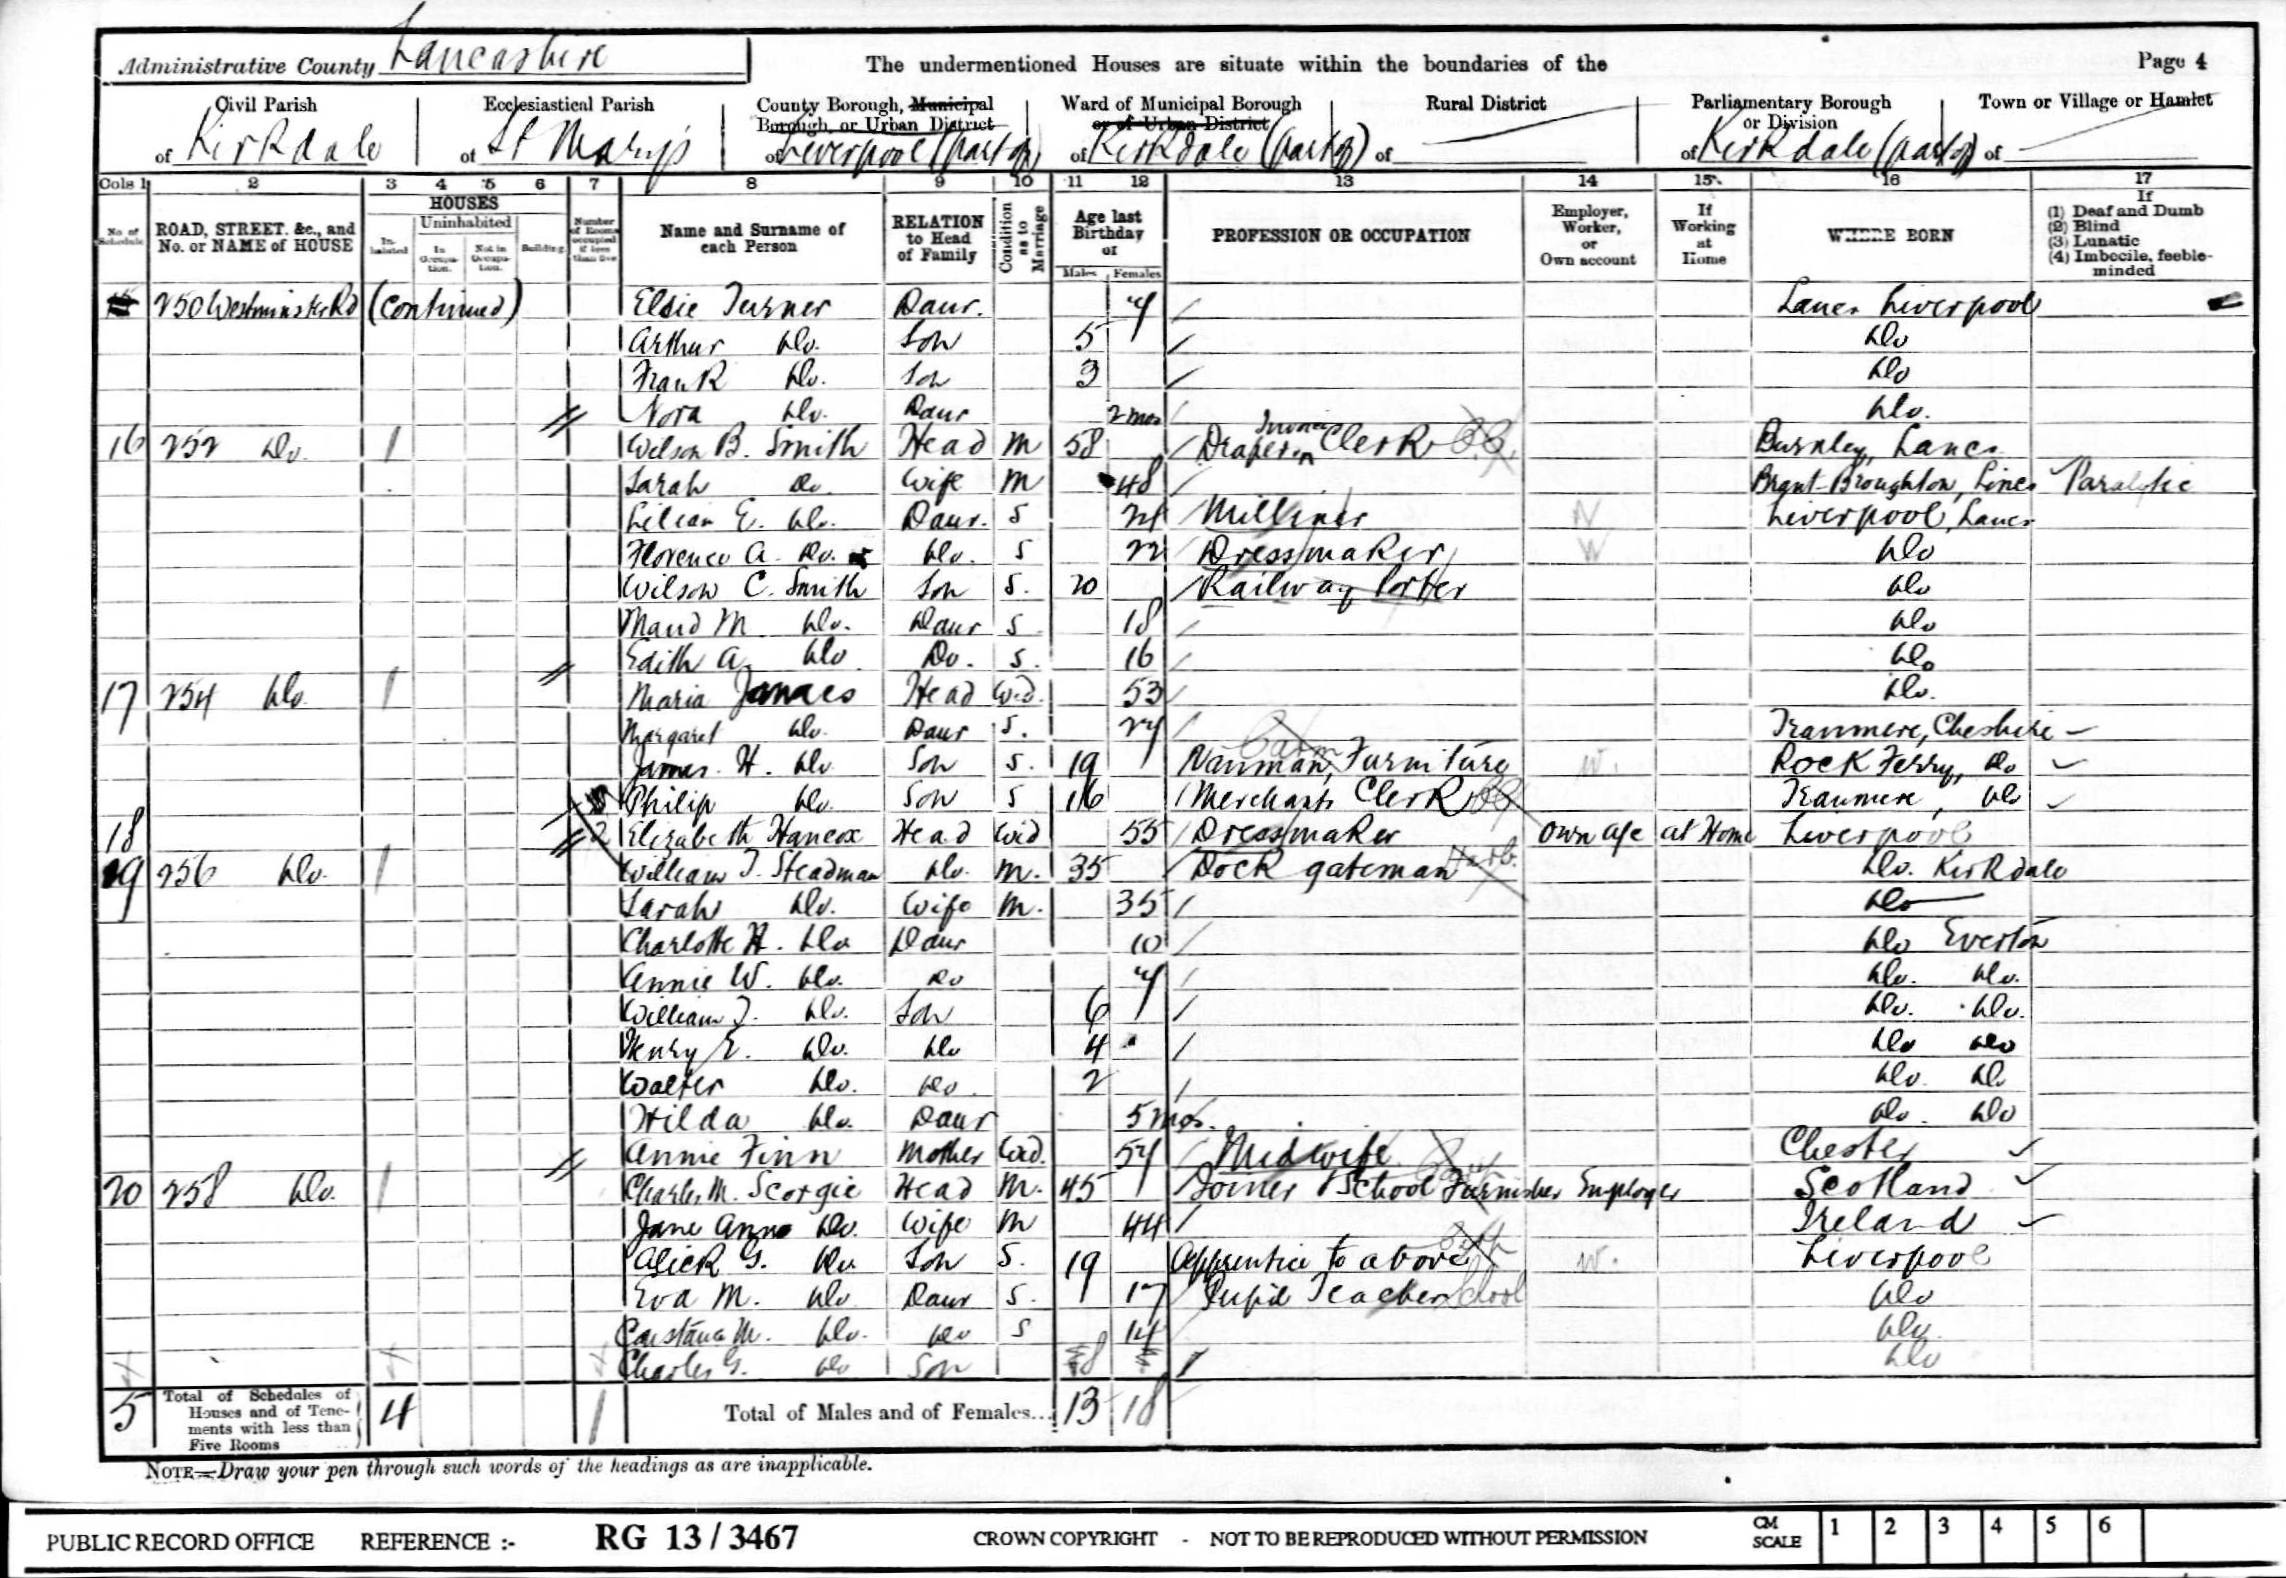 Administrative County Lancashire
The undermentioned Houses are situate within the boundaries of the
Page 4
Civil Parish
of Kirkdale
Ecclesiastical Parish
of St Mary's
County Borough, Municipal Borough, or Urban District
of Liverpool (part of)
Ward of Municipal Borough or of Urban District
of Kirkdale (part of)
Rural District
of
Parliamentary Borough or Division
of Kirkdale (part of)
Town or Village or Hamlet
of
Cols 1 2 3 4 5 6 7 8 9 10 11 12 13 14 15 16 17
No. of Schedule
ROAD, STREET, &c., and No. or NAME of HOUSE
HOUSES
Inhabited
Uninhabited
In Occupation.
Not in Occupation.
Building
Number of Rooms occupied if less than five
Name and Surname of each Person
RELATION to Head of Family
Condition as to Marriage
Age last Birthday of
Males Females
PROFESSION OR OCCUPATION
Employer, Worker, or Own account
If Working at Home
WHERE BORN
If
(1) Deaf and Dumb
(2) Blind
(3) Lunatic
(4) Imbecile, feeble-minded
250 Westminster Rd (Continued) Elsie Turner Daur. 7 Lancs Liverpool
Arthur do. Son 5 do
Frank do. Son 3 do
Nora do. Daur 2 mos do.
16 252 do. 1 Wilson B. Smith Head M 58 Drapers Invoice Clerk Burnley, Lancs
Sarah Do. Wife M 48 Brant Broughton, Lincs Paralytic
Lilian E. do. Daur. S 24 Milliner W Liverpool, Lancs
Florence A. Do. do. S 22 Dressmaker W do
Wilson C. Smith Son S. 20 Railway Porter do
Maud M do. Daur S 18 do
Edith A. do Do. S. 16 do
17 254 do. 1 Maria James Head Wid. 53 do.
Margaret do. Daur S. 27 Tranmere, Cheshire
James H. do Son S. 19 Vanman, Furniture W. Rock Ferry, Do
Philip do. Son S 16 Merchants Clerk Tranmere, do
18 2 Elizabeth Hancox Head Wid 55 Dressmaker Own a/c at Home Liverpool
19 256 do. 1 William J. Steadman do. M. 35 Dock gateman do. Kirkdale
Sarah do. Wife M. 35 do
Charlotte H. do Daur 10 do Everton
Annie W. do. Do 7 do. do.
William J. do. Son 6 do. do.
Henry E. do. do 4 do do
Walter do. do. 2 do do
Hilda do. Daur 5 mos. do. do
Annie Finn Mother Wid. 57 Midwife Chester
20 258 do. 1 Charles M. Scorgie Head M. 45 Joiner & School Furnisher Employer Scotland
Jane Anne do. Wife M 44 Ireland
Alick G. Do Son S. 19 Apprentice to above W. Liverpool
Eva M. do Daur S. 17 Pupil Teacher School do
M. do. do S 14 do
Charles G. do Son 8 do
5 Total of Schedules of Houses and of Tenements with less than Five Rooms 4 1 Total of Males and of Females... 13 18
NOTE—Draw your pen through such words of the headings as are inapplicable.
PUBLIC RECORD OFFICE REFERENCE :- RG 13 / 3467 CROWN COPYRIGHT - NOT TO BE REPRODUCED WITHOUT PERMISSION CM SCALE 1 2 3 4 5 6